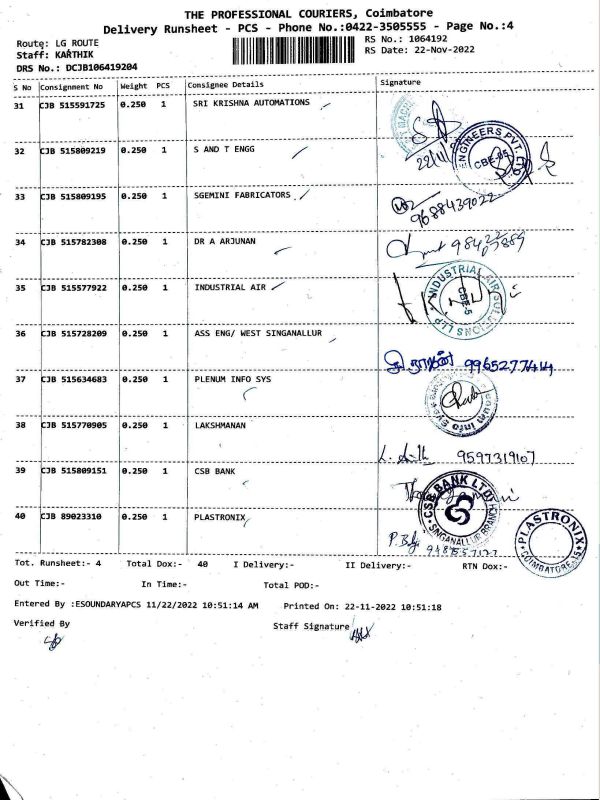 THE PROFESSIONAL COURIERS, Coimbatore
Delivery Runsheet - PCS - Phone No.:0422-3505555 - Page No.:4
Route: LG ROUTE
RS No.: 1064192
Staff: KARTHIK
RS Date: 22-Nov-2022
DRS No.: DCJB106419204
S No Consignment No Weight PCS Consignee Details Signature
31 CJB 515591725 0.250 1 SRI KRISHNA AUTOMATIONS
22/11/
32 CJB 515809219 0.250 1 S AND T ENGG
ENGINEERS PVT. LTD
CBE-05
33 CJB 515809195 0.250 1 SGEMINI FABRICATORS
9688439022
34 CJB 515782308 0.250 1 DR A ARJUNAN
35 CJB 515577922 0.250 1 INDUSTRIAL AIR
INDUSTRIAL AIR SOLUTIONS LLP
CBE-5
36 CJB 515728209 0.250 1 ASS ENG/ WEST SINGANALLUR
9965277414
37 CJB 515634683 0.250 1 PLENUM INFO SYS
38 CJB 515770905 0.250 1 LAKSHMANAN
9597319107
39 CJB 515809151 0.250 1 CSB BANK
CSB BANK LTD
SINGANALLUR BRANCH
40 CJB 89023310 0.250 1 PLASTRONIX
PLASTRONIX
COIMBATORE-15
Tot. Runsheet:- 4 Total Dox:- 40 I Delivery:- II Delivery:- RTN Dox:-
Out Time:- In Time:- Total POD:-
Entered By :ESOUNDARYAPCS 11/22/2022 10:51:14 AM Printed On: 22-11-2022 10:51:18
Verified By Staff Signature